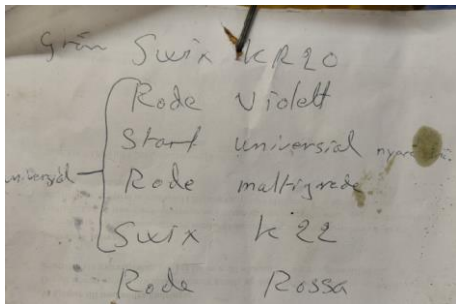 Grön Swix KR20
Rode Violett
Start universial
universial Rode multigrade
Swix K22
Rode Rossa